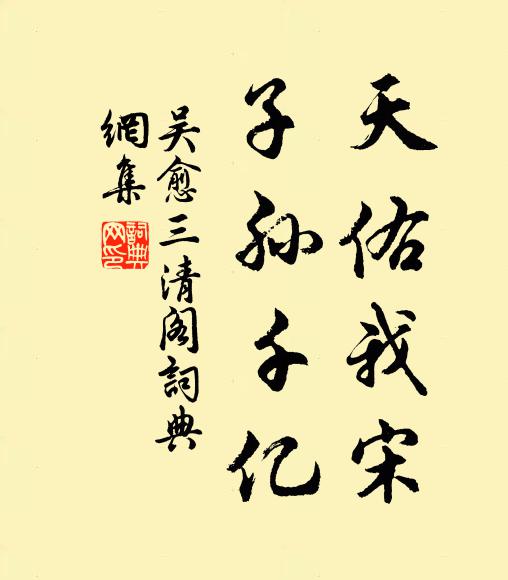 天佑我宋
子孙千亿
吴愈三清阁詞典
網集
詞典
网印